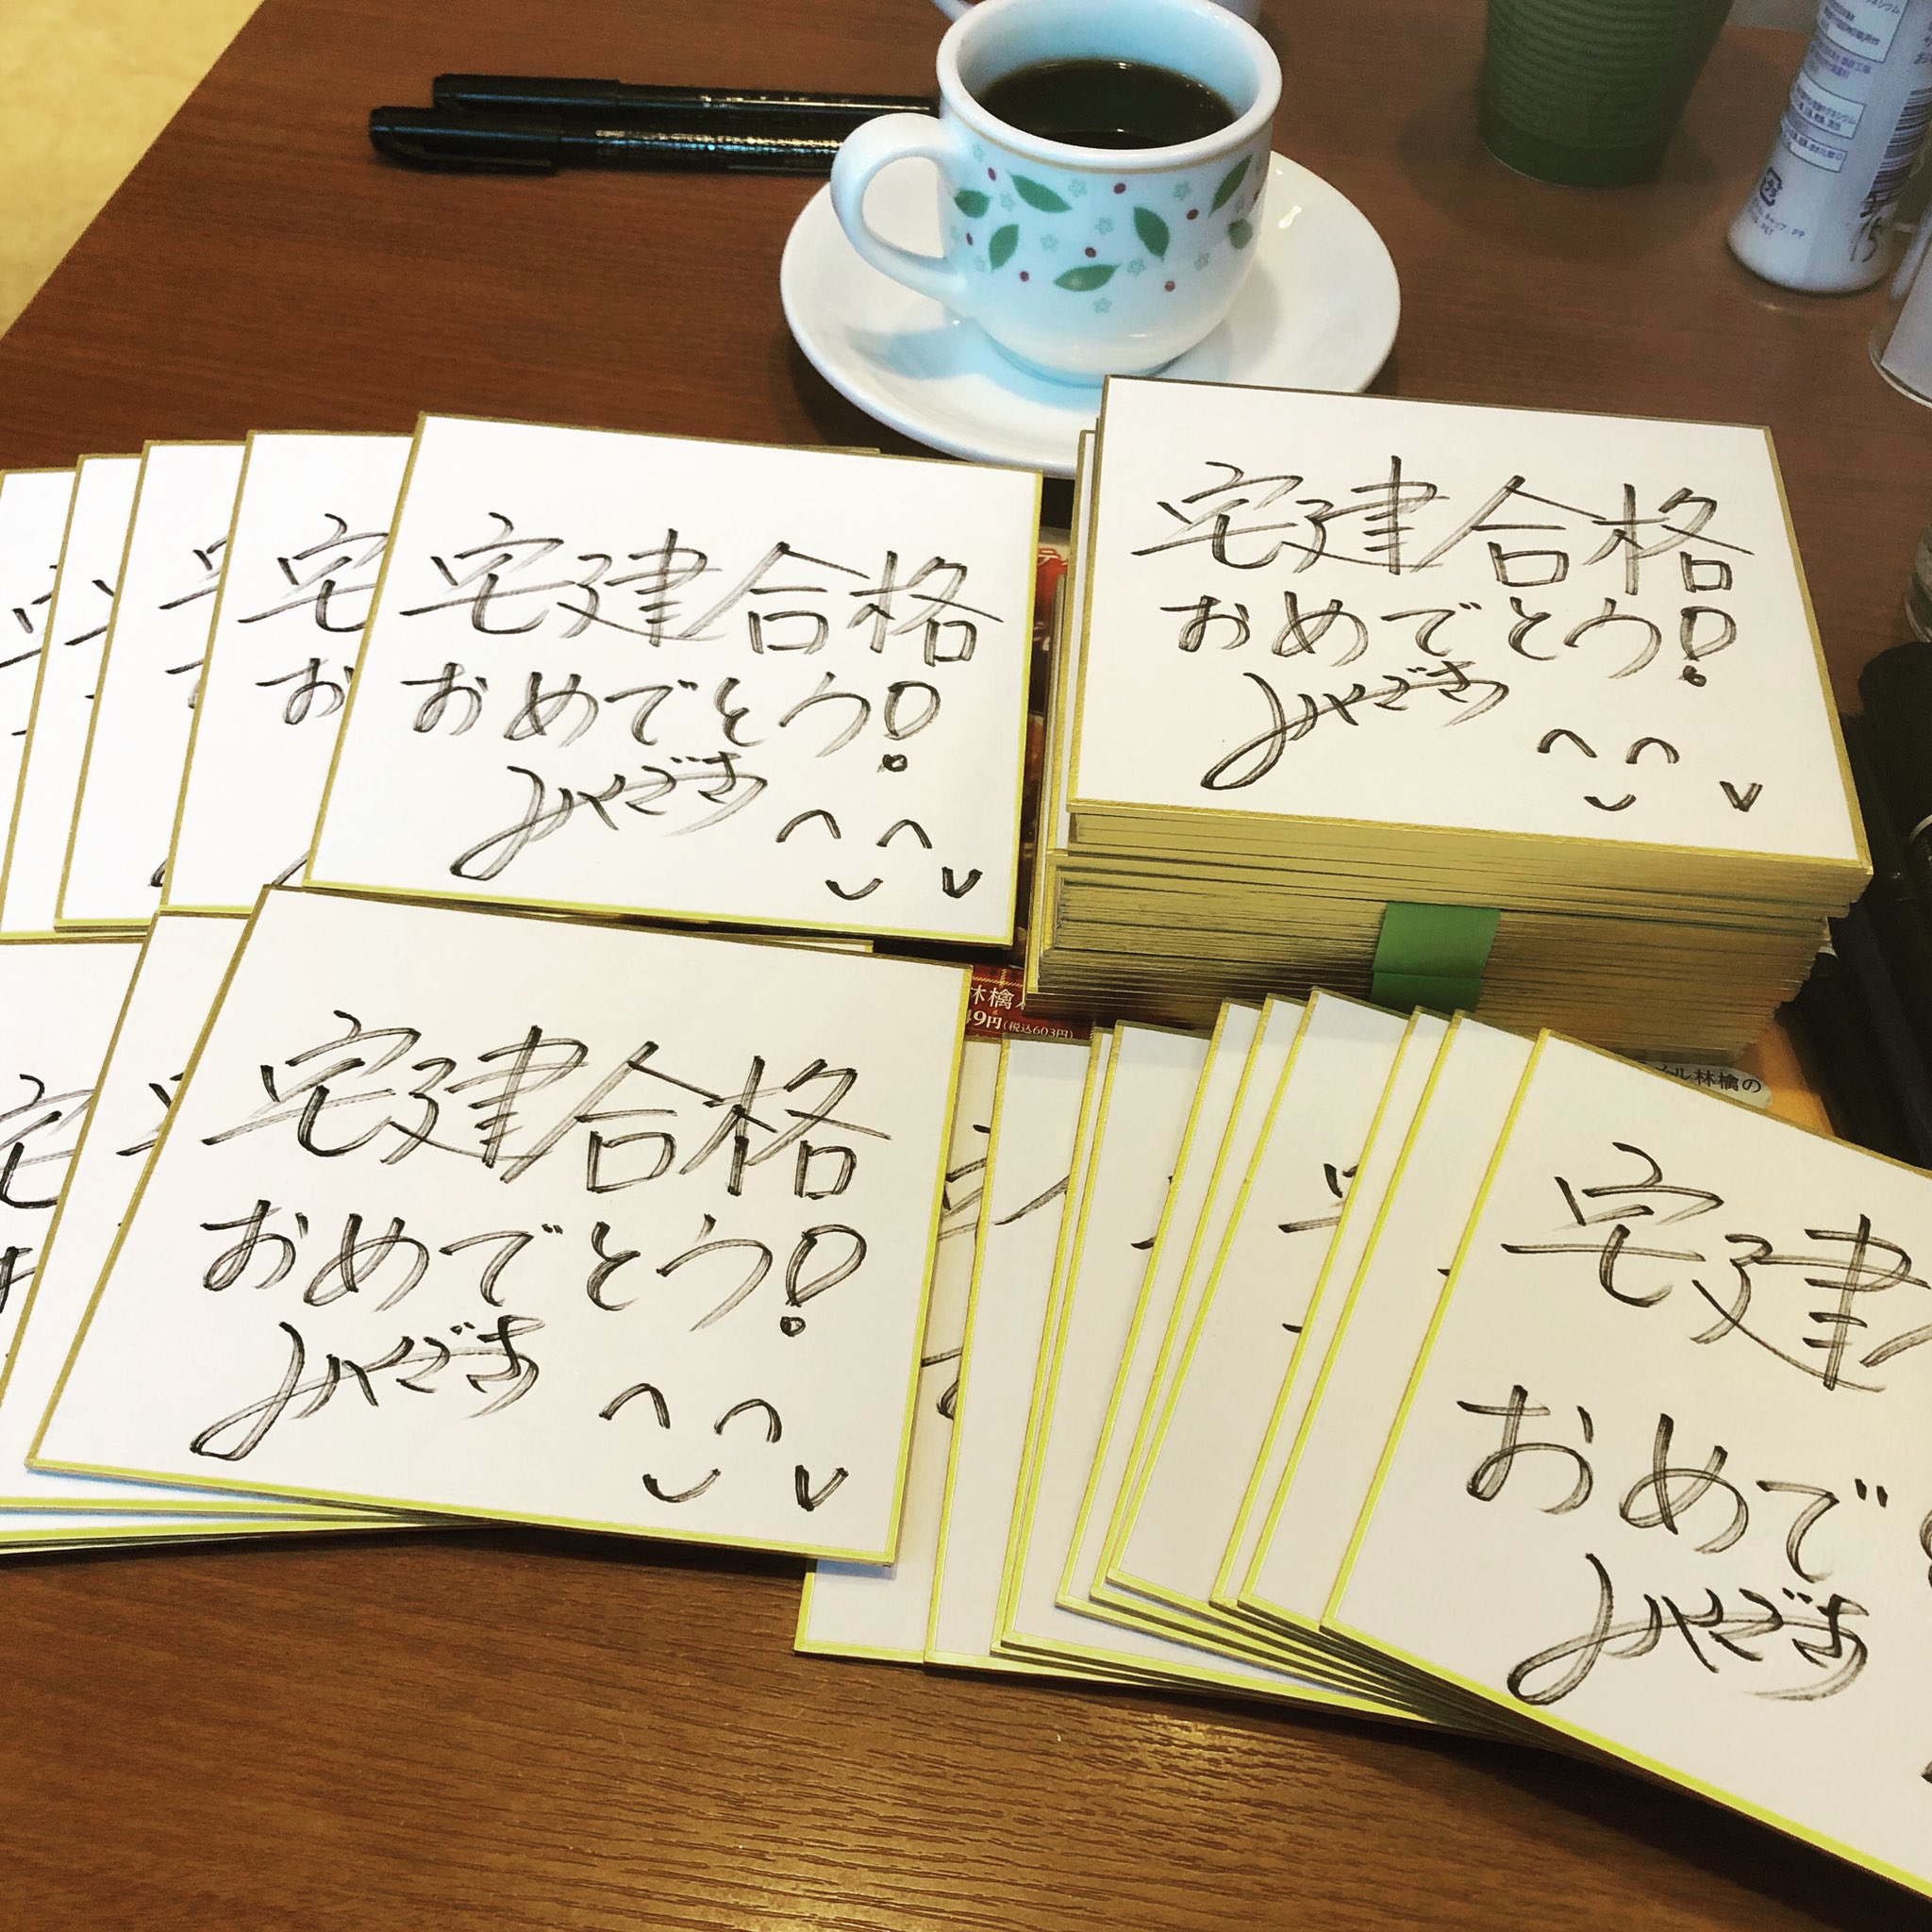 宅建合格
おめでとう!
みやざき
宅建合格
おめでとう!
みやざき
宅
お
宅建合格
おめでとう!
みやざき
宅建
おめで
みやざき
林檎
49円(税込603円)
ル林檎の